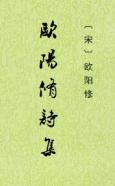 〔宋〕欧阳修
歐陽脩詩集